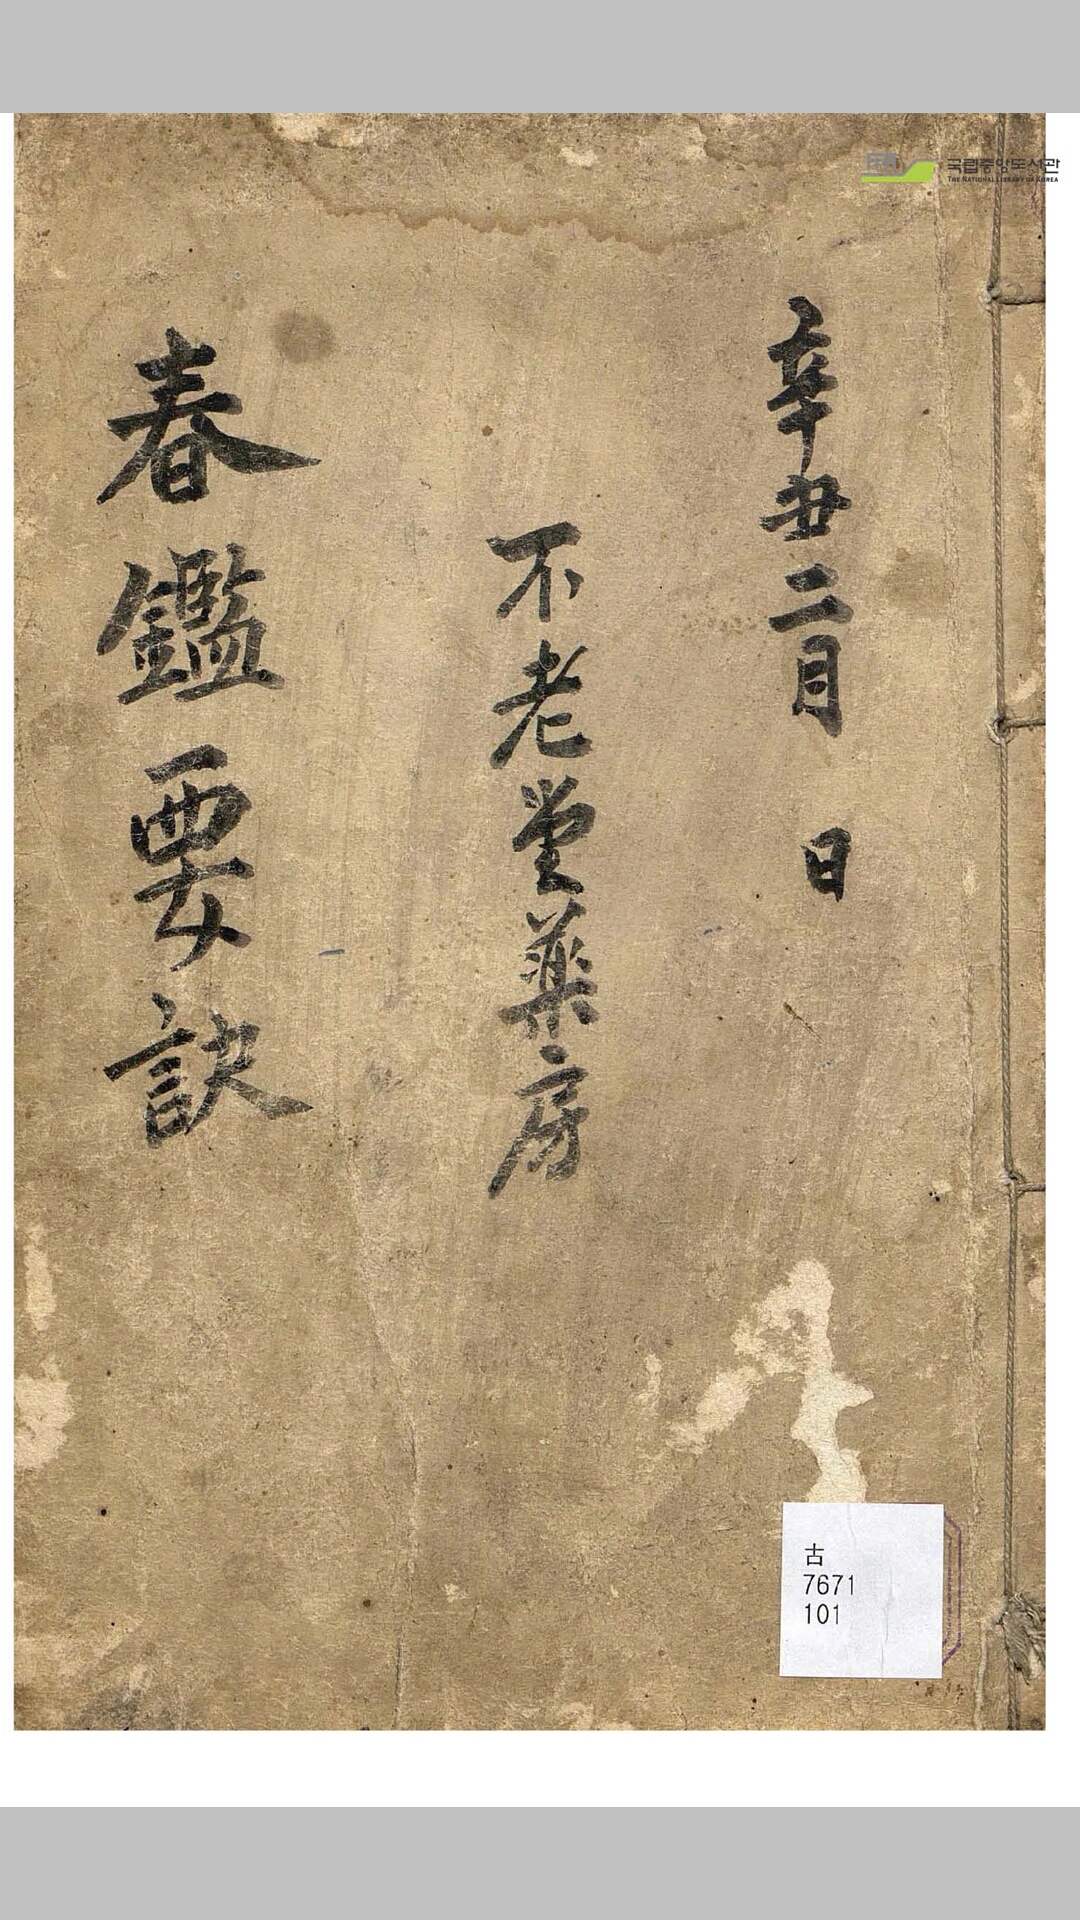 국립중앙도서관
THE NATIONAL LIBRARY OF KOREA
辛丑二月 日
不老堂藥房
春鑑要訣
古
7671
101